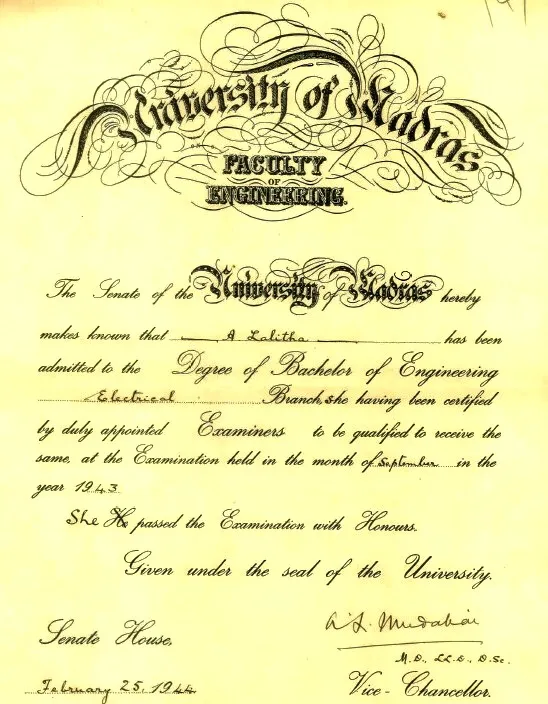 University of Madras
FACULTY
OF
ENGINEERING.
The Senate of the University of Madras hereby
makes known that A Lalitha has been
admitted to the Degree of Bachelor of Engineering
Electrical Branch, she having been certified
by duly appointed Examiners to be qualified to receive the
same, at the Examination held in the month of September in the
year 1943
She He passed the Examination with Honours.
Given under the seal of the University.
A. L. Mudaliar
Senate House,
M.D., LL.D., D.Sc.
February 25, 1944
Vice-Chancellor.